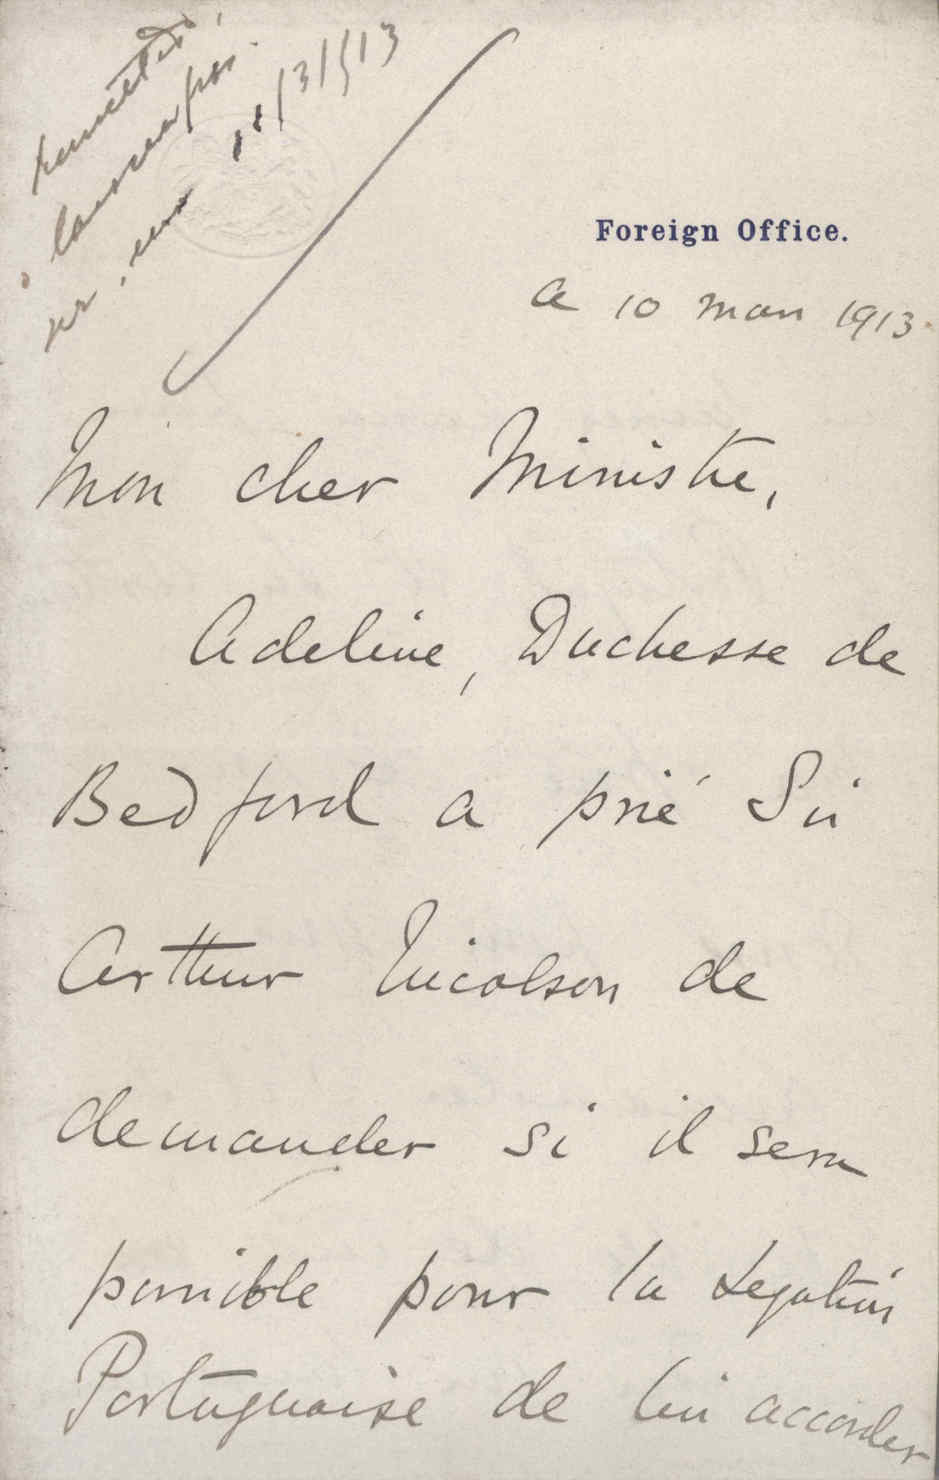 11/3/913
Foreign Office.
a 10 mars 1913.
Mon cher Ministre,
Adeline, Duchesse de
Bedford a prié Sir
Arthur Nicolson de
demander si il sera
possible pour la Legation
Portuguaise de lui accorder